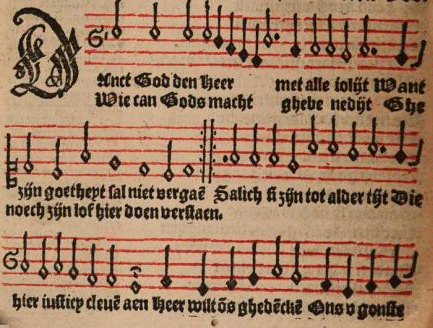 DAnct God den Heer met alle iolijt Want
Wie can Gods macht ghebenedijt Ghe
zijn goetheyt sal niet vergaẽ Salich si zijn tot alder tijt Die
noech zijn lof hier doen verstaen.
hier iusticy cleuẽ aen Heer wilt õs ghedẽckẽ Ons v gonste